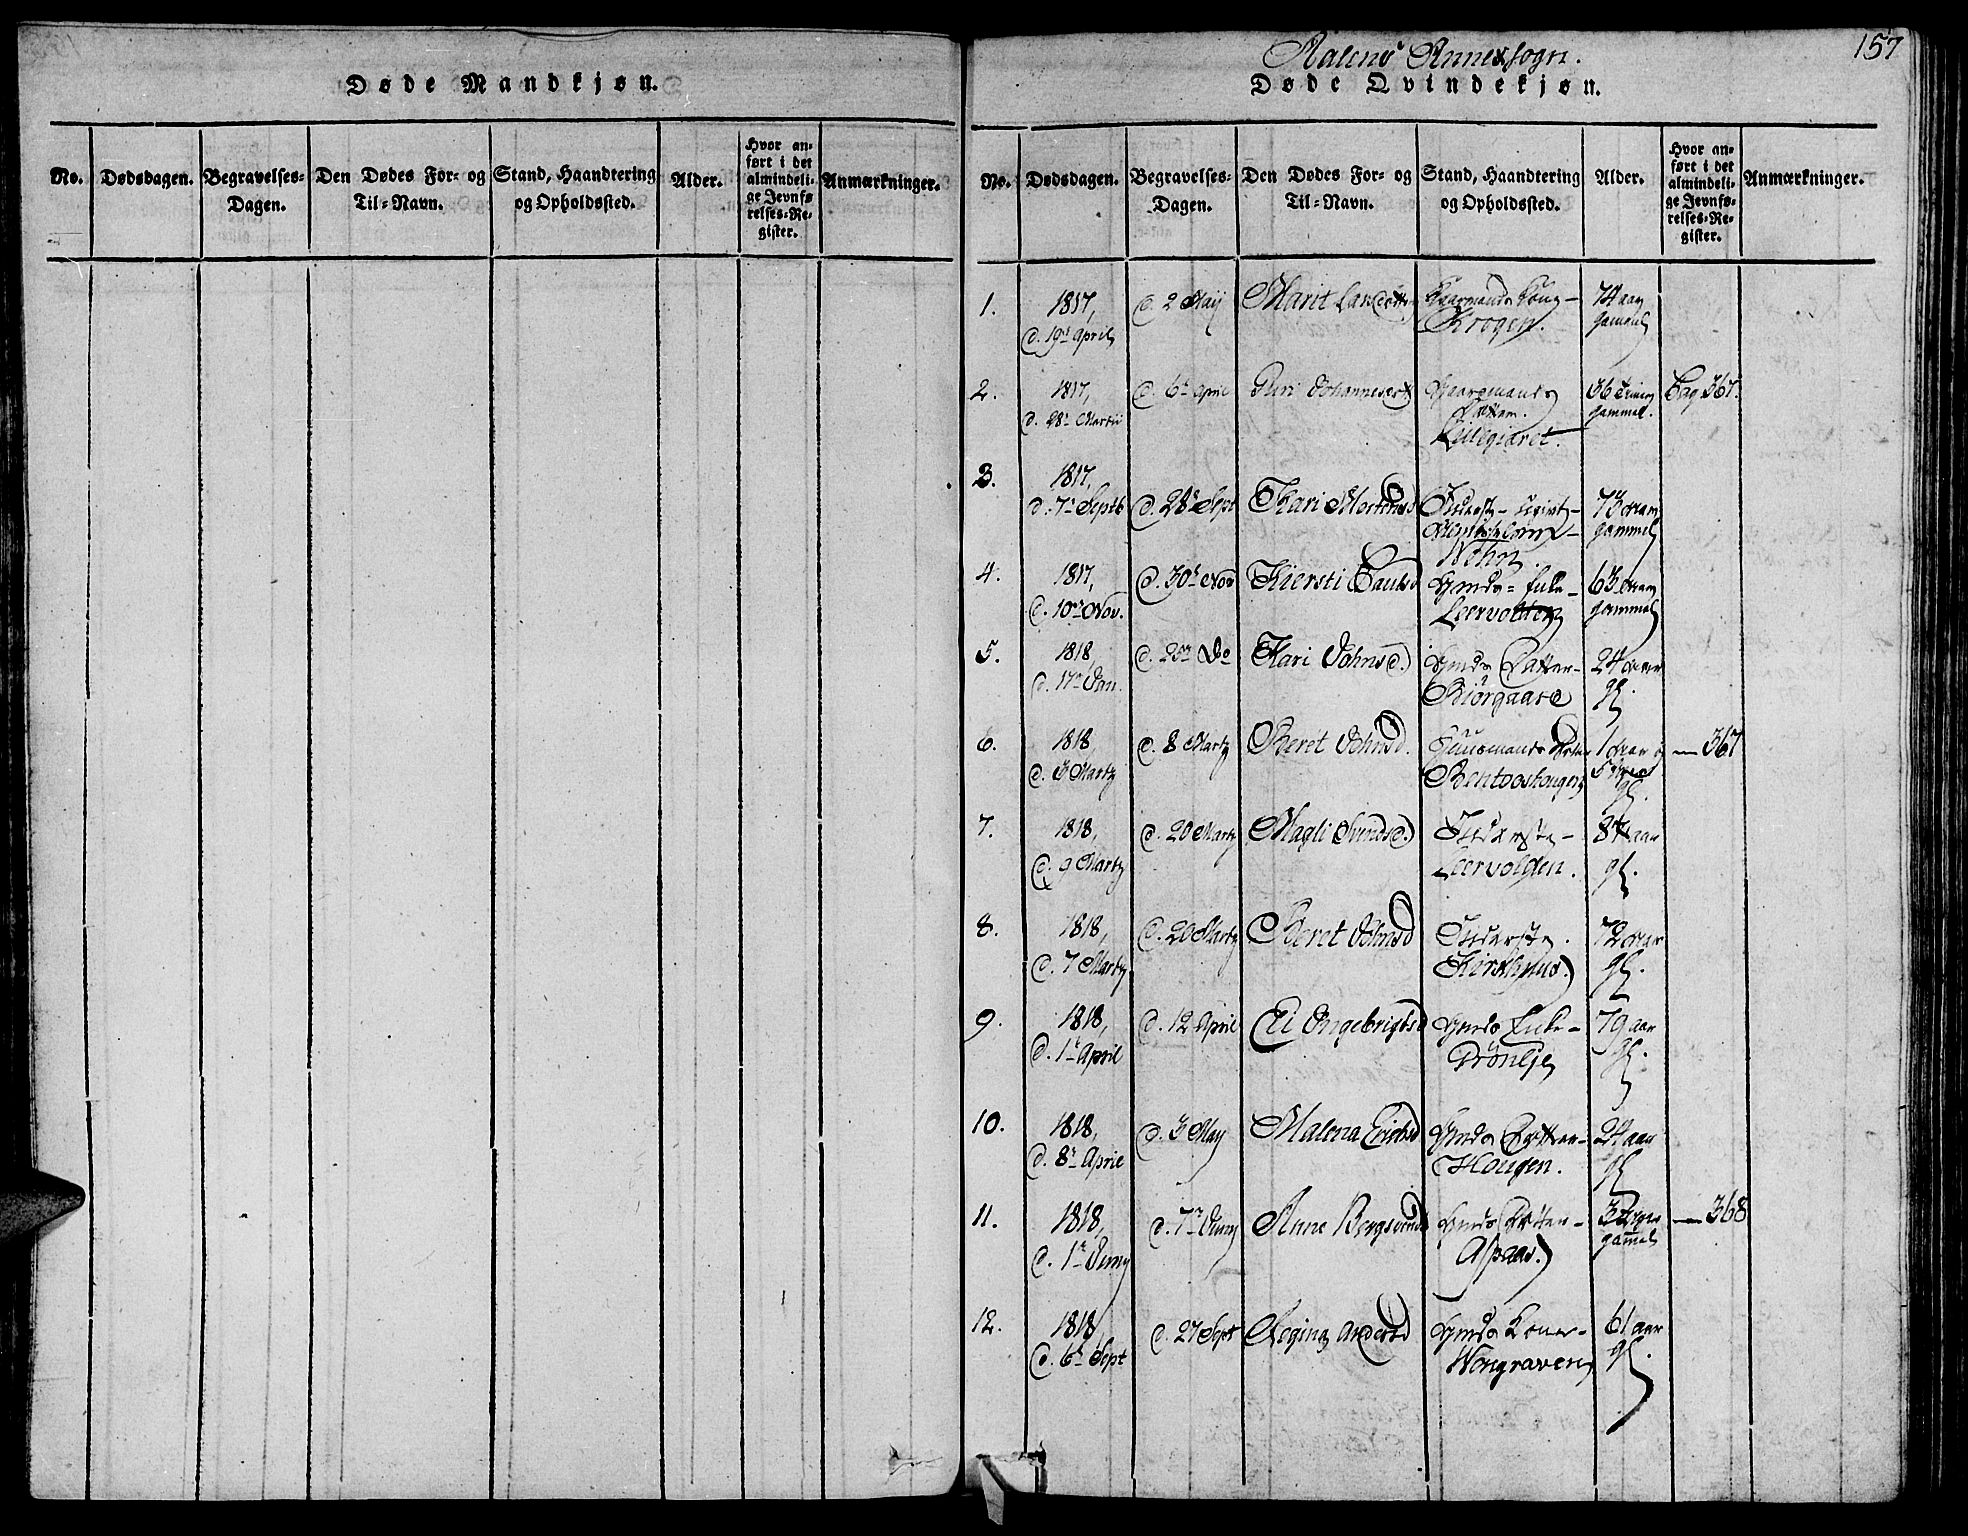 Døde Mandkjøn.
No.
Dødsdagen.
Begravelses=
Dagen.
Den Dødes For= og
Til=Navn.
Stand, Haandtering
og Opholdssted.
Alder.
Hvor an=
ført i det
almindeli=
ge Jevnfø=
relses=Re=
gister.
Anmærkninger.
157
Aalens Annexsogn.
Døde Qvindekjøn.
No.
Dødsdagen.
Begravelses=
Dagen.
Den Dødes For= og
Til=Navn.
Stand, Haandtering
og Opholdssted.
Alder.
Hvor an=
ført i det
almindeli=
ge Jevnfø=
relses=Re=
gister.
Anmærkninger.
1.
1817,
d. 19de April
d. 2 Maij
Marit
Krogen.
74 aar
gammel
2.
1817,
d. 28de Martii
d. 6te April
Guri
Gaardmands
Lillegiæret.
36
gammel.
Pag 367.
3.
1817,
d. 7de Septb
d. 28de Sept
Kari Mortensd
Inderste
73 Aar
gammel
4.
1817,
d. 10de Nov.
d. 30te Nov
Kiersti Paulsd
Gmds Enke
Leervolden
63 Aar
gammel
5.
1818,
d. 17de Jan.
d. 25de Do
Kari Johnsd.
Gmds Datter
Biörgaard
24 Aar
gl.
6.
1818,
d. 3 Martz
d. 8 Martz
Beret Johnsd.
Huusmands
1 Aar og
5
gl.
— 367
7.
1818,
d. 9 Martz
d. 20 Martz
Magli Svendsd.
Inderste
Leervolden.
84 aar
gl.
8.
1818,
d. 7 Martz
d. 20 Martz
Beret Johnsd
Inderste.
Kirkhuus.
72 Aar
gl.
9.
1818,
d. 1te April
d. 12 April
Eli Ingebrigtsd
Gmds Enke
79 aar
gl.
10.
1818,
d. 8de April
d. 3 May
Malena Erichsd
Gmds Datter
Hougen.
24 aar
gl
11.
1818,
d. 1te Juny
d. 7de Juny
Anne Bergsvends
Gmds Datter
Aspaas.
gammel
— 368
12.
1818,
d. 6te Sept
d. 27 Sept
Regina Andersd
Gmds Kone
Wongraven
61 aar
gl.